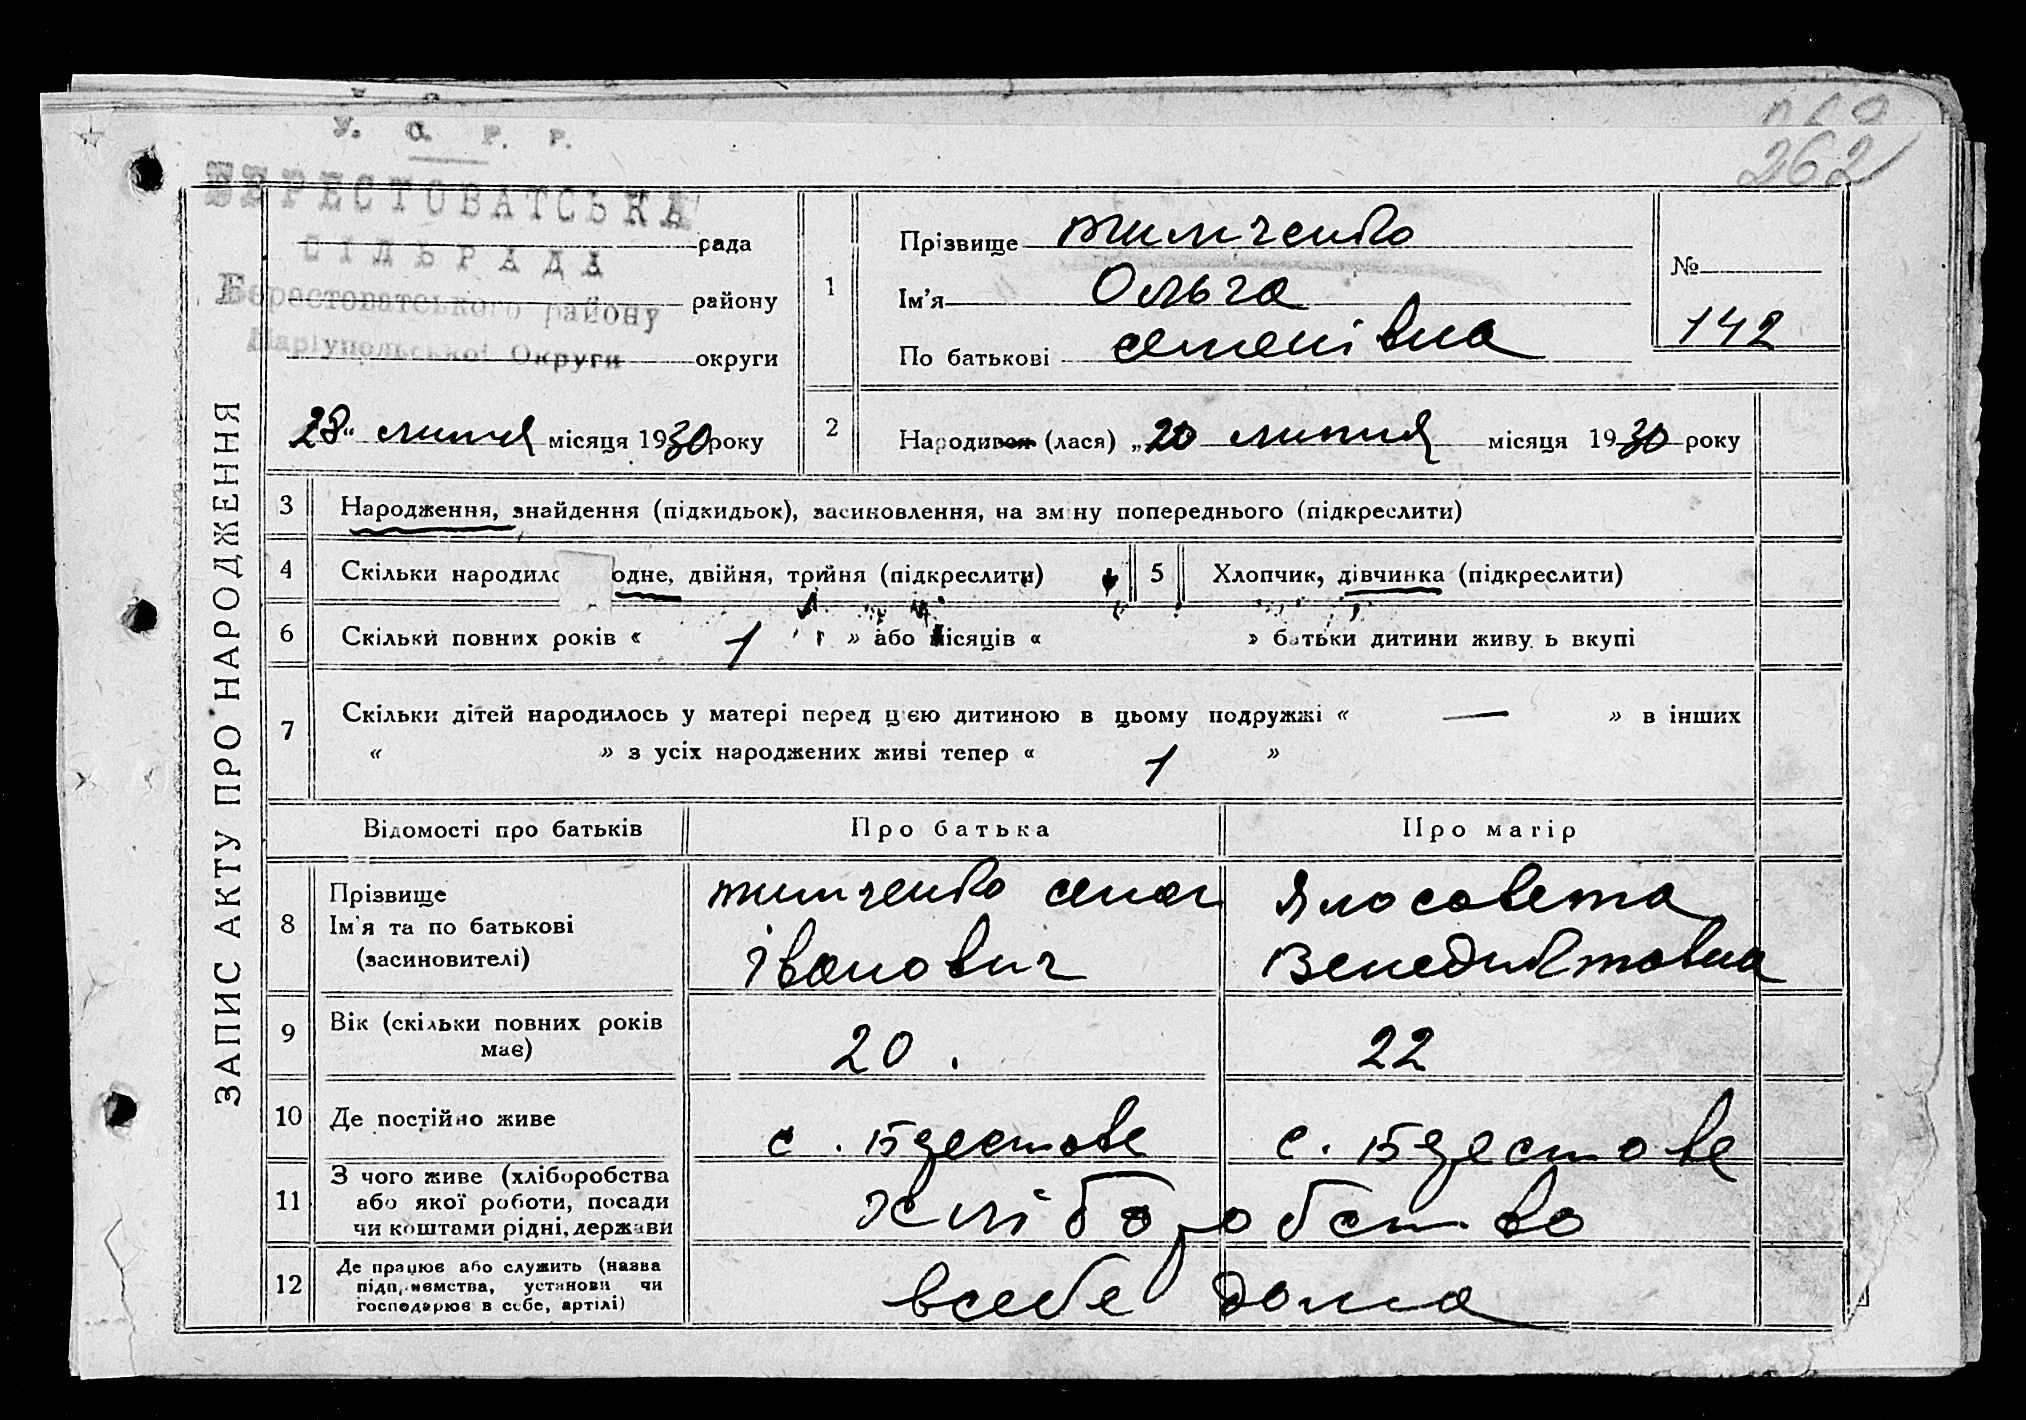 У. С. Р. Р.
262
БЕРЕСТОВАТСЬКА
СІЛЬРАДА
Берестоватського району
Маріупольської Округи
рада
району
округи
28 " липня місяця 1930 року
ЗАПИС АКТУ ПРО НАРОДЖЕННЯ
1 Прізвище Тимченко
Ім'я Ольга
По батькові Семенівна
№
142
2 Народився (лася) „20 липня місяця 1930 року
3 Народження, знайдення (підкидьок), засиновлення, на зміну попереднього (підкреслити)
4 Скільки народило одне, двійня, трійня (підкреслити)
5 Хлопчик, дівчинка (підкреслити)
6 Скільки повних років « 1 » або місяців « » батьки дитини живуть вкупі
7 Скільки дітей народилось у матері перед цією дитиною в цьому подружжі « — » в інших
« » з усіх народжених живі тепер « 1 »
Відомості про батьків Про батька Про матір
8 Прізвище
Ім'я та по батькові
(засиновителі)
Тимченко Семен
Іванович
Ялосовета
Венедиктовна
9 Вік (скільки повних років
має)
20. 22
10 Де постійно живе с. Берестове с. Берестове
11 З чого живе (хліборобства
або якої роботи, посади
чи коштами рідні, держави
хліборобство
12 Де працює або служить (назва
підприємства, установи чи
господарює в себе, артілі)
в себе дома